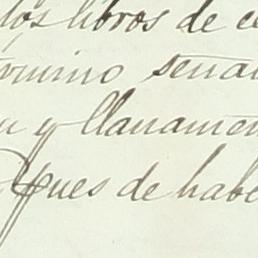 los libros de ce
érmino seña
n y llanamen
spues de habe